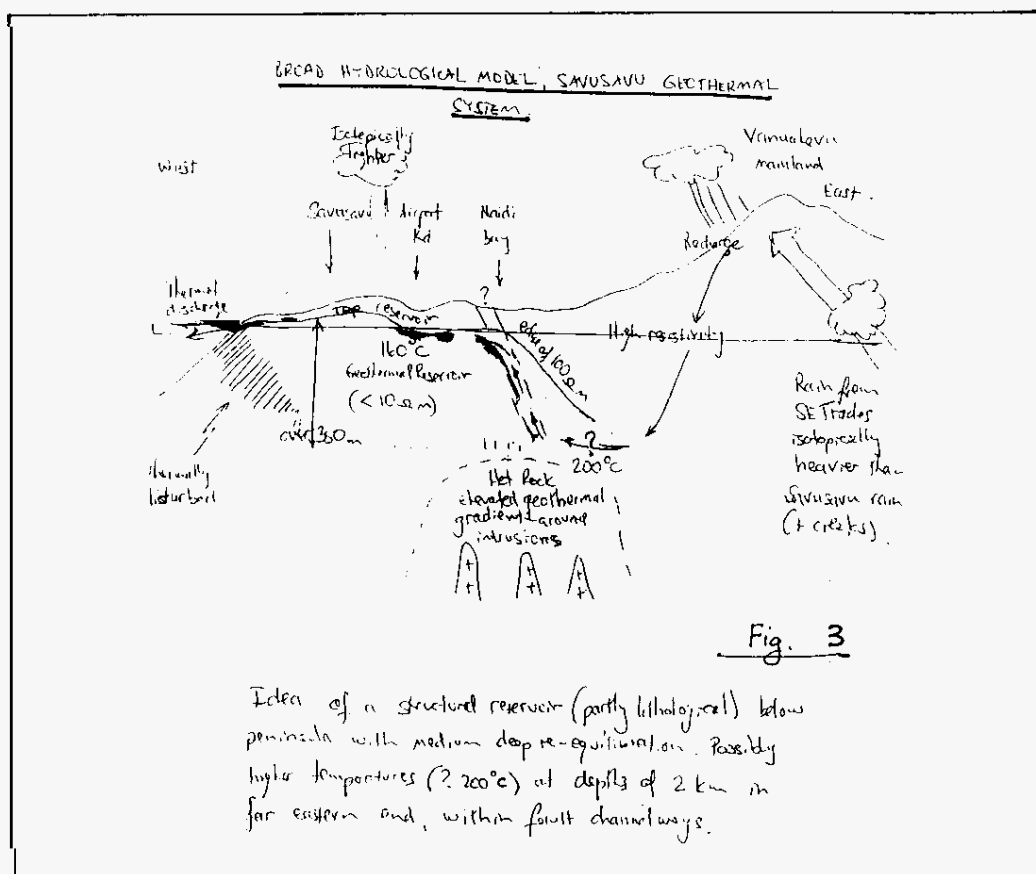 BROAD HYDROLOGICAL MODEL, SAVUSAVU GEOTHERMAL
SYSTEM.
West
Isotopically
lighter
Vanualevu
mainland
East.
Savusavu
Airport
Rd
Naidi
Bay
Recharge
Thermal
discharge
?
Top reservoir
edge of 100 Ωm
High resistivity
160°C
Geothermal Reservoir
(<10 Ωm)
over 350m
thermally
disturbed
?
200°C
Hot Rock
elevated geothermal
gradient around
intrusions
Rain from
SE Trades
isotopically
heavier than
Savusavu rain
(+ creeks).
Fig. 3
Idea of a structural reservoir (partly lithological) below
peninsula with medium deep re-equilibration. Possibly
higher temperatures (? 200°C) at depths of 2 km in
far eastern end, within fault channelways.